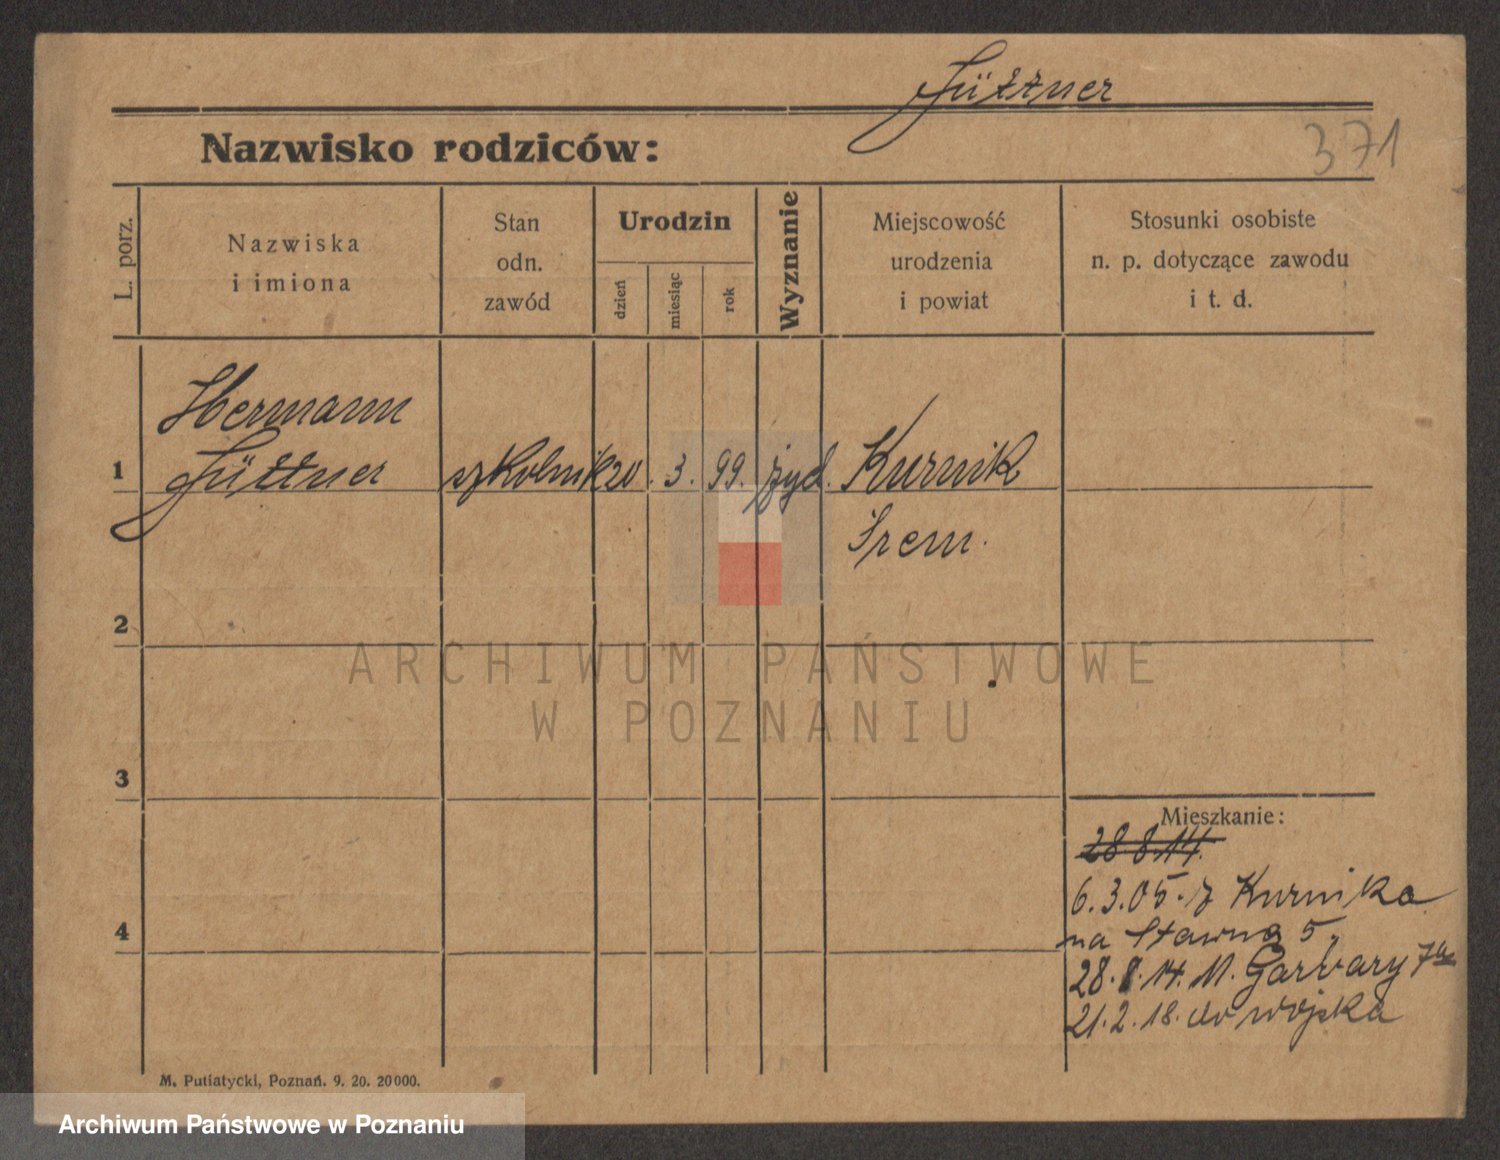 Jüttner
371
Nazwisko rodziców:
L. porz.
Nazwiska
i imiona
Stan
odn.
zawód
Urodzin
dzień
miesiąc
rok
Wyznanie
Miejscowość
urodzenia
i powiat
Stosunki osobiste
n. p. dotyczące zawodu
i t. d.
Hermann
1 Jüttner szkolnik 20. 3. 99. żyd. Kurnik
Śrem.
2
ARCHIWUM PAŃSTWOWE
W POZNANIU
3
Mieszkanie:
28 8.14.
6.3.05. z Kurnika
4
na Stawną 5.
28.8.14. M. Garbary 7a
21.2.18. do wojska
M. Putiatycki, Poznań. 9. 20. 20000.
Archiwum Państwowe w Poznaniu